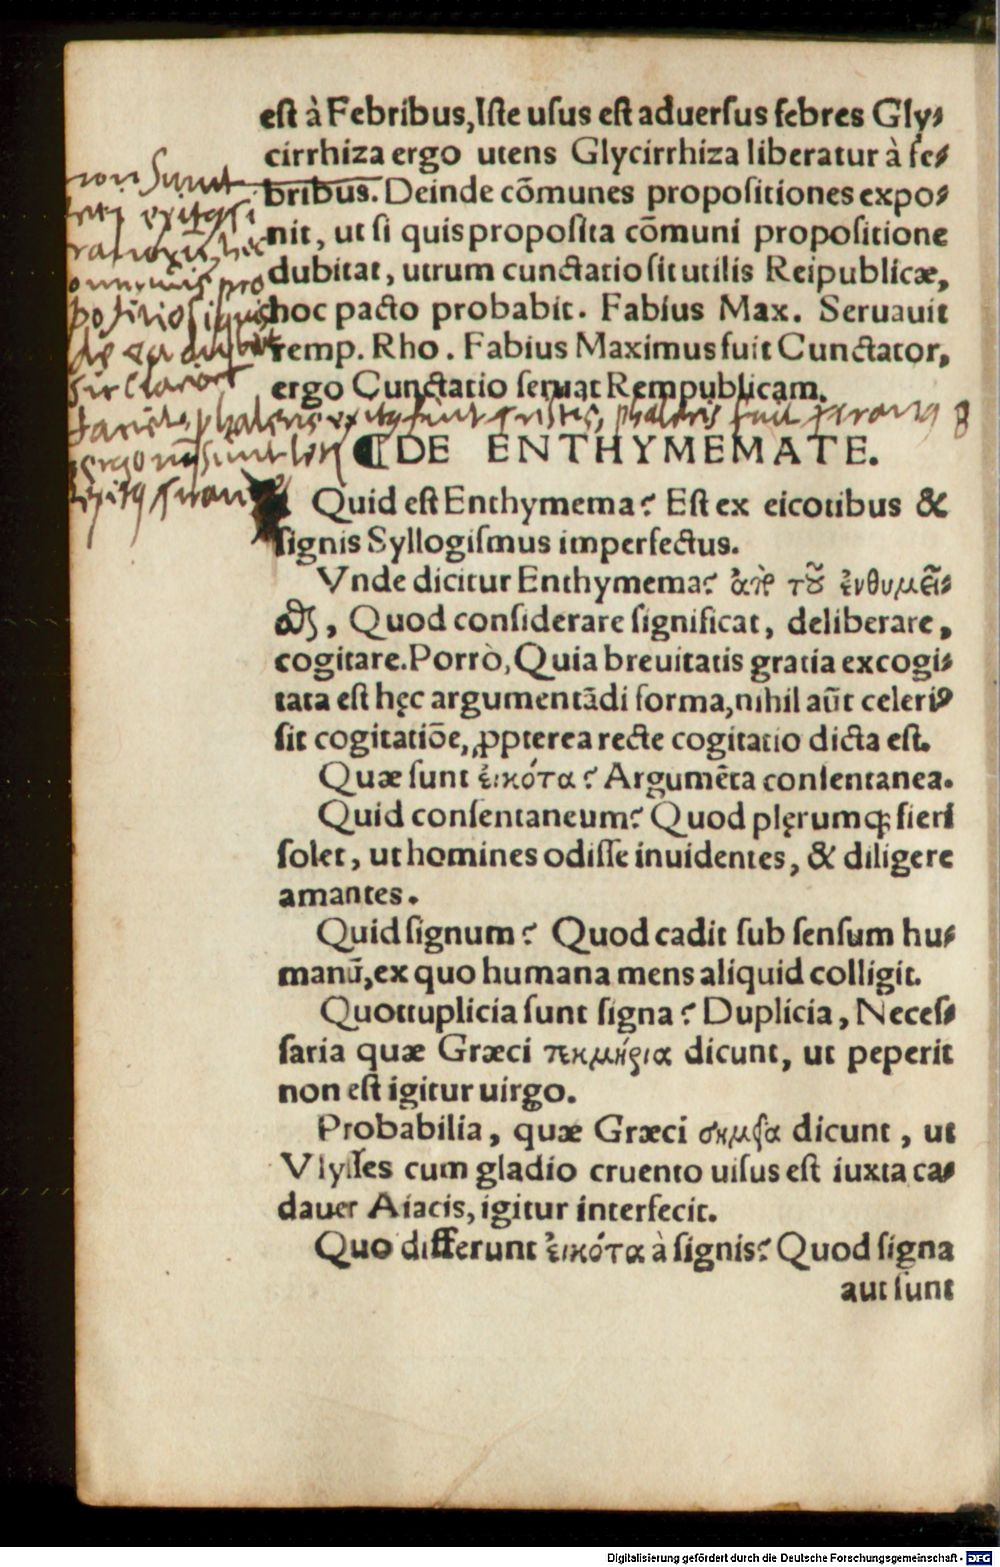 est à Febribus, Iste usus est aduersus febres Gly-
cirrhiza ergo utens Glycirrhiza liberatur à fe-
bribus. Deinde cõmunes propositiones expo-
nit, ut si quis proposita cõmuni propositione
dubitat, utrum cunctatio sit utilis Reipublicæ,
hoc pacto probabit. Fabius Max. Seruauit
remp. Rho. Fabius Maximus fuit Cunctator,
ergo Cunctatio seruat Rempublicam.
non sunt
¶DE ENTHYMEMATE.
Quid est Enthymema? Est ex eicotibus &
signis Syllogismus imperfectus.
Vnde dicitur Enthymema? ἀπὸ τοῦ ἐνθυμεῖ-
σθαι, Quod considerare significat, deliberare,
cogitare. Porrò, Quia breuitatis gratia excogi-
tata est hęc argumentãdi forma, nihil aũt celeriꝰ
sit cogitatiõe, ꝓpterea recte cogitatio dicta est.
Quæ sunt ἐικότα? Argumẽta consentanea.
Quid consentaneum? Quod plęrumqꝫ fieri
solet, ut homines odisse inuidentes, & diligere
amantes.
Quid signum? Quod cadit sub sensum hu-
manũ, ex quo humana mens aliquid colligit.
Quottuplicia sunt signa? Duplicia, Neces-
saria quæ Græci τεκμήρια dicunt, ut peperit
non est igitur uirgo.
Probabilia, quæ Græci σημεῖα dicunt, ut
Vlysses cum gladio cruento uisus est iuxta ca-
dauer Aiacis, igitur interfecit.
Quo differunt ἐικότα à signis? Quod signa
aut sunt
Digitalisierung gefördert durch die Deutsche Forschungsgemeinschaft - DFG